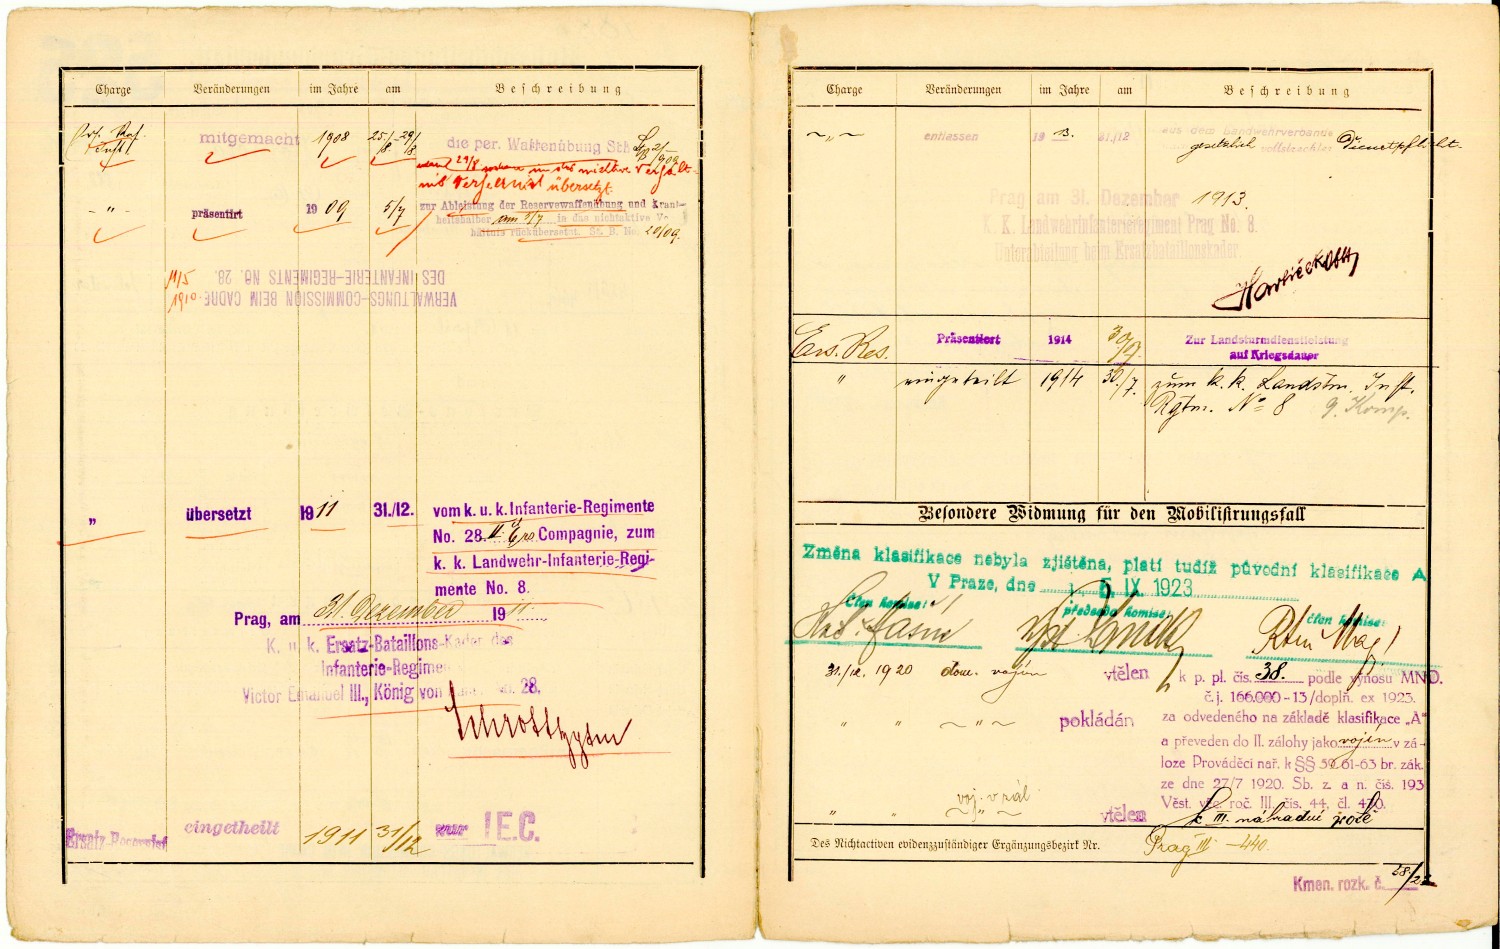 Charge Veränderungen im Jahre am Beschreibung
mitgemacht 1908 25/8-29/8 die per. Waffenübung
-"- präsentirt 1909 5/7 zur Ableistung der Reservewaffenübung und Krank-
heitshalber am 5/7 in das nichtaktive
hältnis rückübersetzt. St. B. No. 20/09.
11/5
1910
VERWALTUNGS-COMMISSION BEIM CADRE
DES INFANTERIE-REGIMENTS NO. 28.
" übersetzt 1911 31./12. vom k. u. k. Infanterie-Regimente
No. 28 Compagnie, zum
k. k. Landwehr-Infanterie-Regi-
mente No. 8.
Prag, am 31. Dezember 1911.
K. u. k. Ersatz-Bataillons-Kader des
Infanterie-Regimen
Victor Emanuel III., König von 28,
Ersatz-Reservist eingetheilt 1911 31/12 zur I E.C.
Charge Veränderungen im Jahre am Beschreibung
~"~ entlassen 1913. 31./12 aus dem Landwehrverbande
gesetzlich vollstreckter Dienstpflicht.
Prag am 31. Dezember 1913.
K. K. Landwehrinfanterieregiment Prag No. 8.
Unterabteilung beim Ersatzbataillonskader.
Ers. Res. Präsentiert 1914 30/7. Zur Landsturmdienstleistung
auf Kriegsdauer
" eingeteilt 1914 30/7. zum k. k. Landstm. Inft.
Rgtm. No 8 9. Komp.
Besondere Widmung für den Mobilisierungsfall
Změna klasifikace nebyla zjištěna, platí tudíž původní klasifikace A
V Praze, dne 5. IX 1923
člen komise: předseda komise: člen komise:
31./12. 1920 dom. vojín vtělen k p. pl. čís. 38. podle výnosu MNO.
č. j. 166.000-13/doplň. ex 1923.
" " ~"~ pokládán za odvedeného na základě klasifikace „A"
a převeden do II. zálohy jako vojín v zá-
loze Prováděcí nař. k §§ 59, 61-63 br. zák.
ze dne 27/7 1920. Sb. z. a n. čís. 193
Věst. věc. roč. III. čís. 44, čl. 430.
voj. v zál.
" " ~"~ vtělen k III. náhradní rotě
Des Nichtactiven evidenzzuständiger Ergänzungsbezirk Nr. Prag III - 440.
Kmen. rozk. č. 28/27